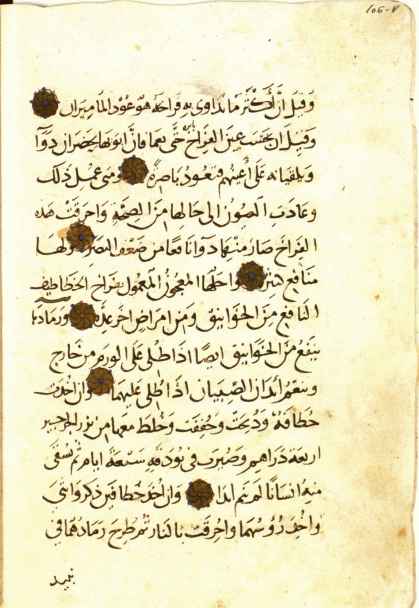 ١٥٦-٧
وقيل ان اكثر ما تداوى به فراخه هو عود الماميران
وقيل ان عين الفراخ حتى يعميا فان ابويها يحضران دوآ
ويلقيانه على اعينهم فتعود باصرة ومتى عمل ذلك
وعادت العيون الى حالها من الصحة واحرقت هذه
الفراخ صار منها دوا نافعا من ضعف البصر ولها
منافع كثيرة واجلها المعجون المعمول بفراخ الخطاطيف
النافع من الخوانيق ومن امراض اخر عدة ورماد
ينفع من الخوانيق ايضا اذا طلى على الورم من خارج
وينفع ابدان الصبيان اذا طلى عليهما وان اخذت
خطافة وذبحت وجففت وخلط معها من بزر الجرجير
اربعة دراهم وصيرت فى بودقه سبعة ايام ثم سقى
منه انسانا لم ينم ابدا وان اخذ خطافين ذكر وانثى
واخذ رؤسهما واحرقت بالنار ثم طرح رمادهما فى
نبيذ